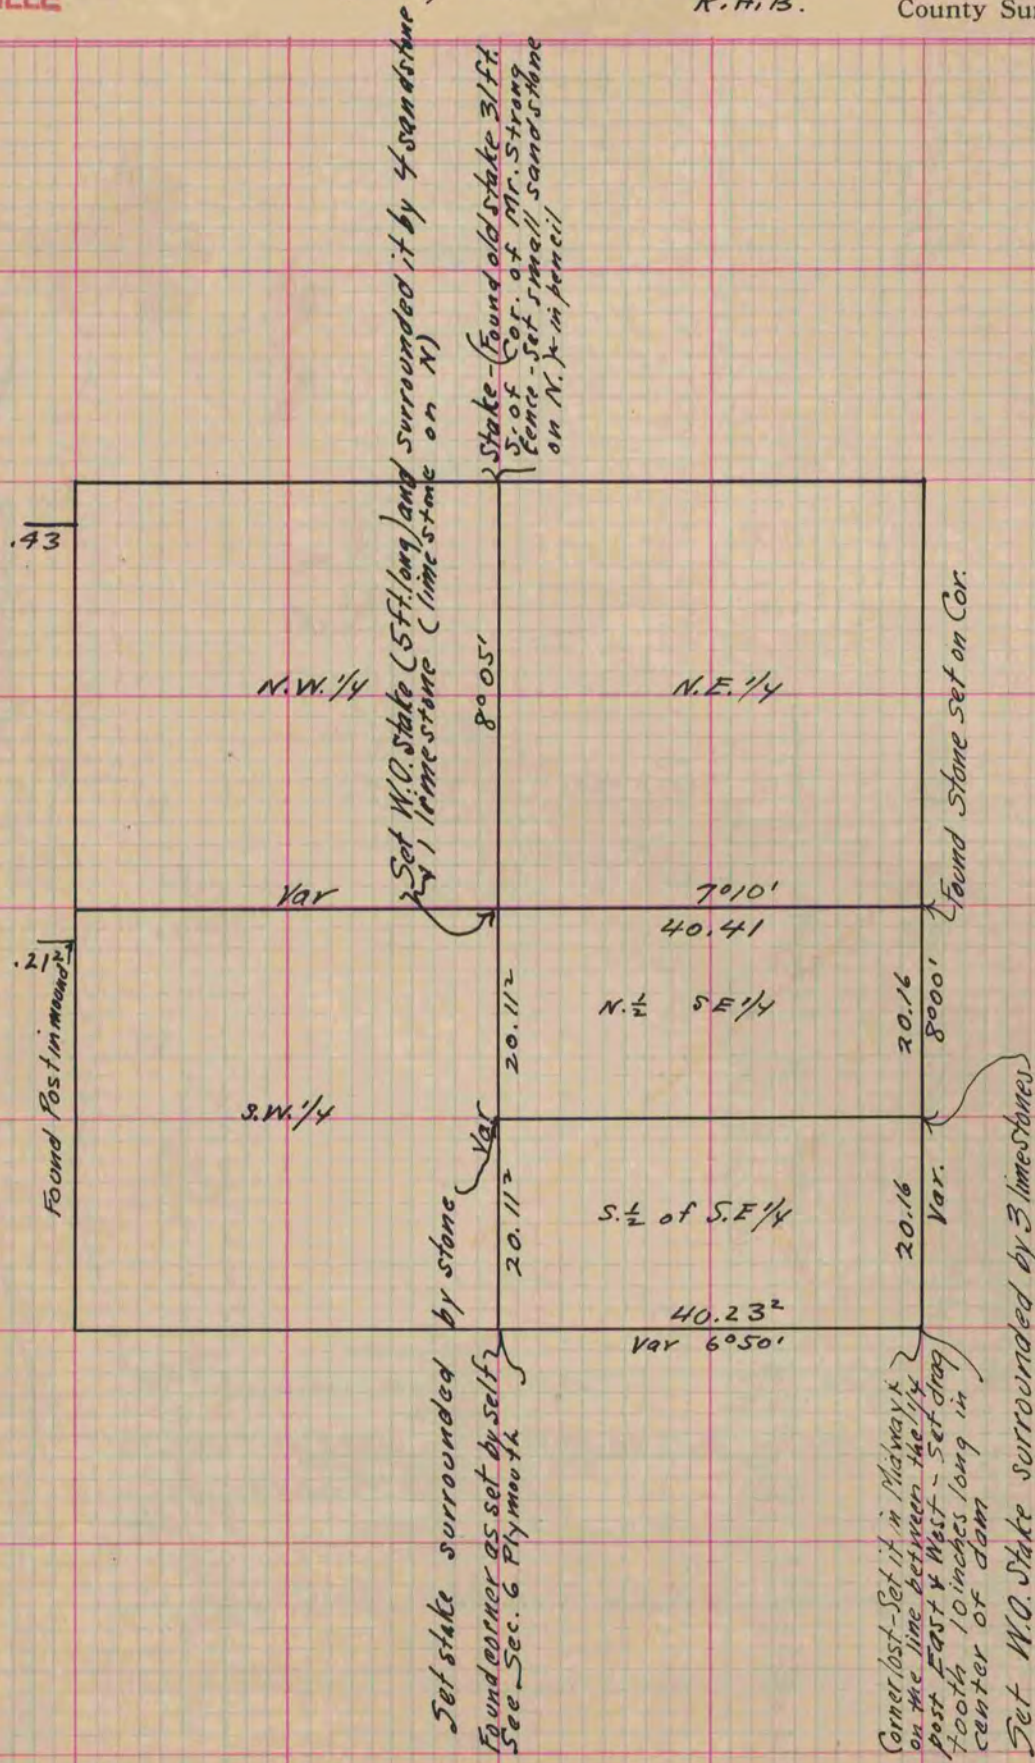 R.H.B.
County Sur
Set W.O. stake (5ft. long) and surrounded it by 4 sandstone
& 1 limestone (limestone on N)
Stake-(Found old stake 31ft.
S. of Cor. of Mr. Strong
fence - Set small sandstone
on N. & in pencil
.43
N.W. 1/4
8°05'
N.E. 1/4
Found stone set on Cor.
Var
7°10'
40.41
.21²
Found Post in mound
20.11²
N. ½ SE 1/4
20.16
8°00'
S.W. 1/4
Var
20.11²
S. ½ of S.E 1/4
20.16
Var.
40.23²
Var 6°50'
Set stake surrounded by stone
Found corner as set by self
See Sec. 6 Plymouth
Corner lost-Set it in Midway &
on the line between the 1/4
post East & West - Set drag
tooth 10 inches long in
center of dam
Set W.O. Stake surrounded by 3 limestones